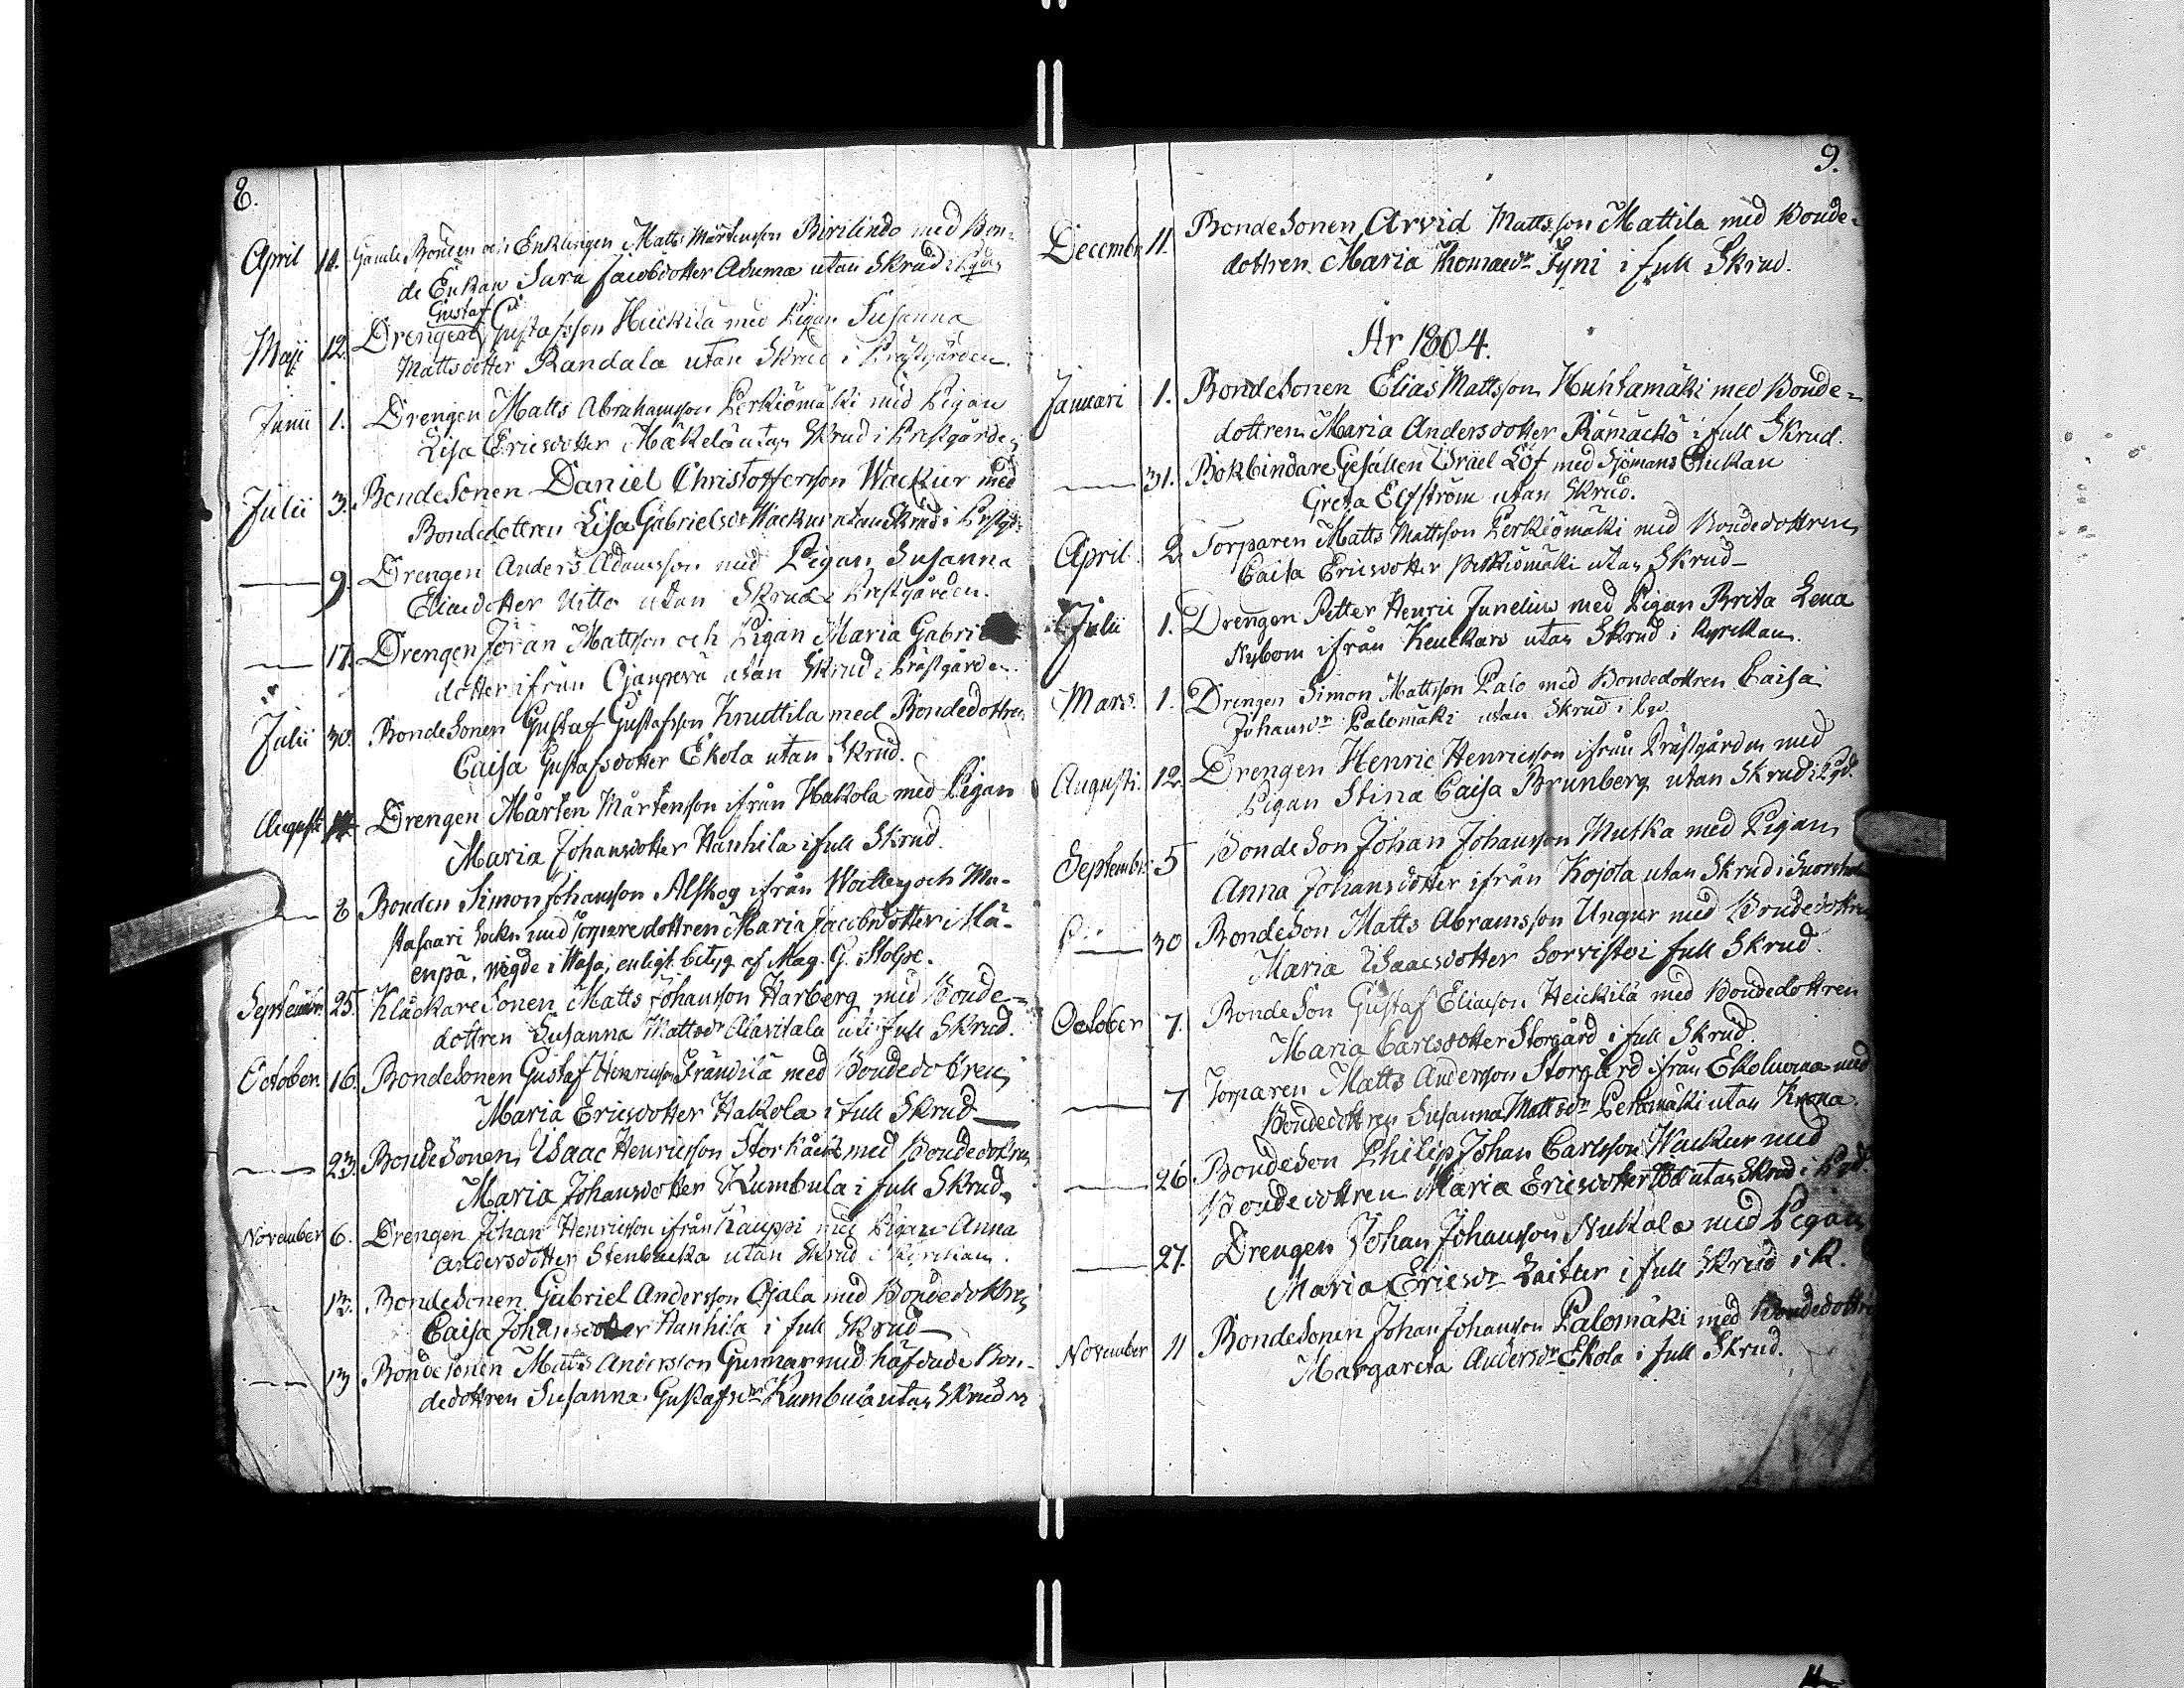 8.
April 14. Gamle Bonden och Enklingen Matts Mårtensson Pirilindo med Bon-
de Enkan Sara Jacobsdotter Asuma utan Skrud i
Gustaf
Maji 12. Drengen Gustafsson Heickilä med Pigan Susanna
Mattsdotter Randala utan Skrud i Prästgården.
Junii 1. Drengen Matts Abrahamsson Perkiömäki med Pigan
Lisa Ericsdotter Mäkelä utan Skrud i Prestgården
Julii 3. BondeSonen Daniel Christoffersson Wackur med
Bondedottren Lisa Gabrielsdr Wackur utan Skrud i Prestg.
— 9. Drengen Anders Adamsson med Pigan Susanna
Eliaedotter Uitto utan Skrud i Prestgården.
— 17. Drengen Jöran Mattsson och Pigan Maria Gabri
dotter ifrån Ojanperä utan Skrud i Prästgården.
Julii 30. BondeSonen Gustaf Gustafsson Knuttila med Bondedottren
Caisa Gustafsdotter Ekola utan Skrud.
Augusti Drengen Mårten Mårtensson ifrån Hakola med Pigan
Maria Johansdotter Hanhila i full Skrud.
— 8 Bonden Simon Johansson Alskog ifrån Woitby och Mu-
stasaari Sockn med Torparedottren Maria Jacobsdotter i Mä-
enpä, wigde i Wasa, enligt betyg af Mag. G. Stolpe.
September 25. KlåckareSonen Matts Johansson Harberg med Bonde-
dottren Susanna Mattsdr Alavitala uti full Skrud.
October. 16. BondeSonen Gustaf Henricsson Frändilä med Bondedottren
Maria Ericsdotter Hakola i full Skrud —
— 23. BondeSonen Isaac Henricsson Storkåck med Bondedottren
Maria Johansdotter Kumbula i full Skrud.
November 6. Drengen Johan Henricsson ifrån Kauppi med Pigan Anna
Andersdotter Stenbacka utan Skrud i Kyrckan.
— 13. BondeSonen Gabriel Andersson Ojala med Bondedottren
Caisa Johansdotter Hanhila i full Skrud —
— 13 BondeSonen Matts Andersson Gunnar med häfdade Bon-
dedottren Susanna Gustafsdr Kumbula utan Skrud
9.
December 11. BondeSonen Arvid Mattsson Mattila med Bonde-
dottren Maria Thomaedr Fyni i full Skrud.
År 1804.
Januari 1. BondeSonen Elias Mattsson Huhtamäki med Bonde-
dottren Maria Andersdotter Rämäckö i full Skrud.
— 31. Bokbindare Gesällen Israel Löf med Sjömans Enckan
Greta Elfström utan Skrud.
April 2. Torparen Matts Mattsson Perkiömäki med Bondedottren
Caisa Ericsdotter Perkiömäki utan Skrud —
Julii 1. Drengen Petter Henric Junelius med Pigan Brita Lena
Nybom ifrån Keuckars utan Skrud i Kyrckan.
Mars. 1. Drengen Simon Mattsson Palo med Bondedottren Caisa
Johansdr Palomäki utan Skrud i
Augusti. 12. Drengen Henric Henricsson ifrån Prästgården med
Pigan Stina Caisa Brunberg utan Skrud i
September 5 BondeSon Johan Johansson Mutka med Pigan
Anna Johansdotter ifrån Kojola utan Skrud i
— 30 BondeSon Matts Abramsson Ungur med Bondedottren
Maria Isaacsdotter Sorvisto i full Skrud.
October 7. BondeSon Gustaf Eliaeson Heickilä med Bondedottren
Maria Carlsdotter Storgård i full Skrud.
— 7 Torparen Matts Andersson Storgård ifrån Ekoluoma med
Bondedottren Susanna Mattsdr utan Krona.
— 26. BondeSon Philip Johan Carlsson Wackur med
Bondedottren Maria Ericsdotter utan Skrud i
— 27. Drengen Johan Johansson Nukala med Pigan
Maria Ericsdr Laitter i full Skrud i K.
November 11 BondeSonen Johan Johansson Palomäki med Bondedottren
Margareta Andersdr Ekola i full Skrud.
11